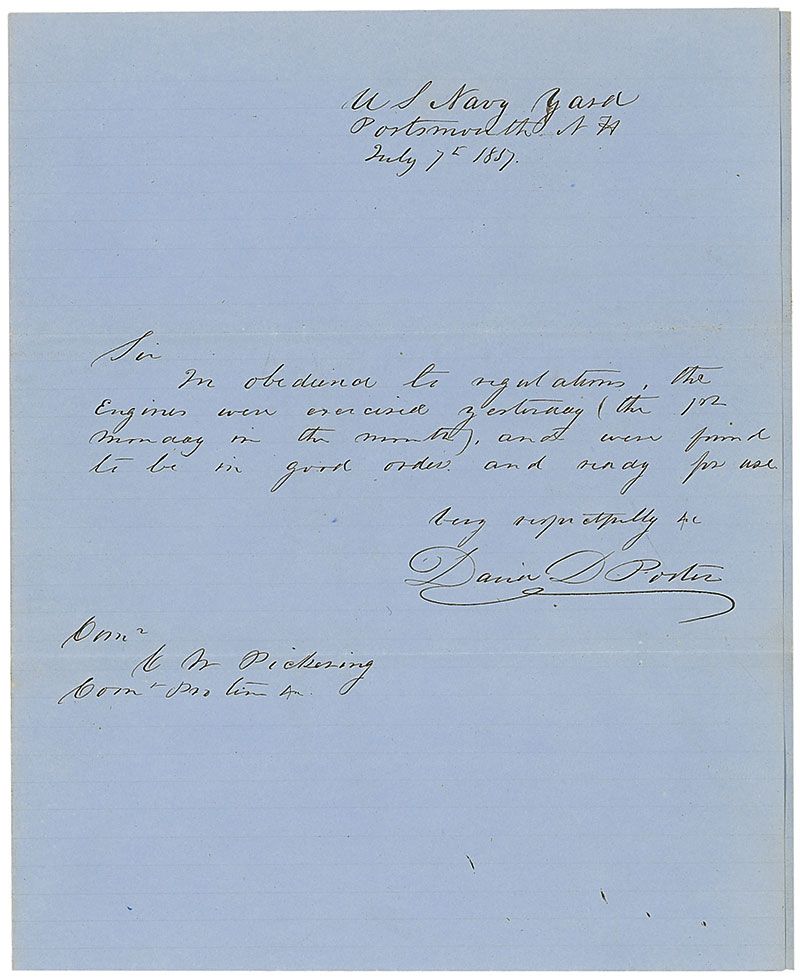 U S Navy Yard
Portsmouth N H
July 7th 1857.
Sir
In obedience to regulations, the
Engines were exercised yesterday (the 1st
Monday in the month), and were found
to be in good order and ready for use
Very respectfully &c
David D Porter
Comr
C W Pickering
Comt Pro tem &c